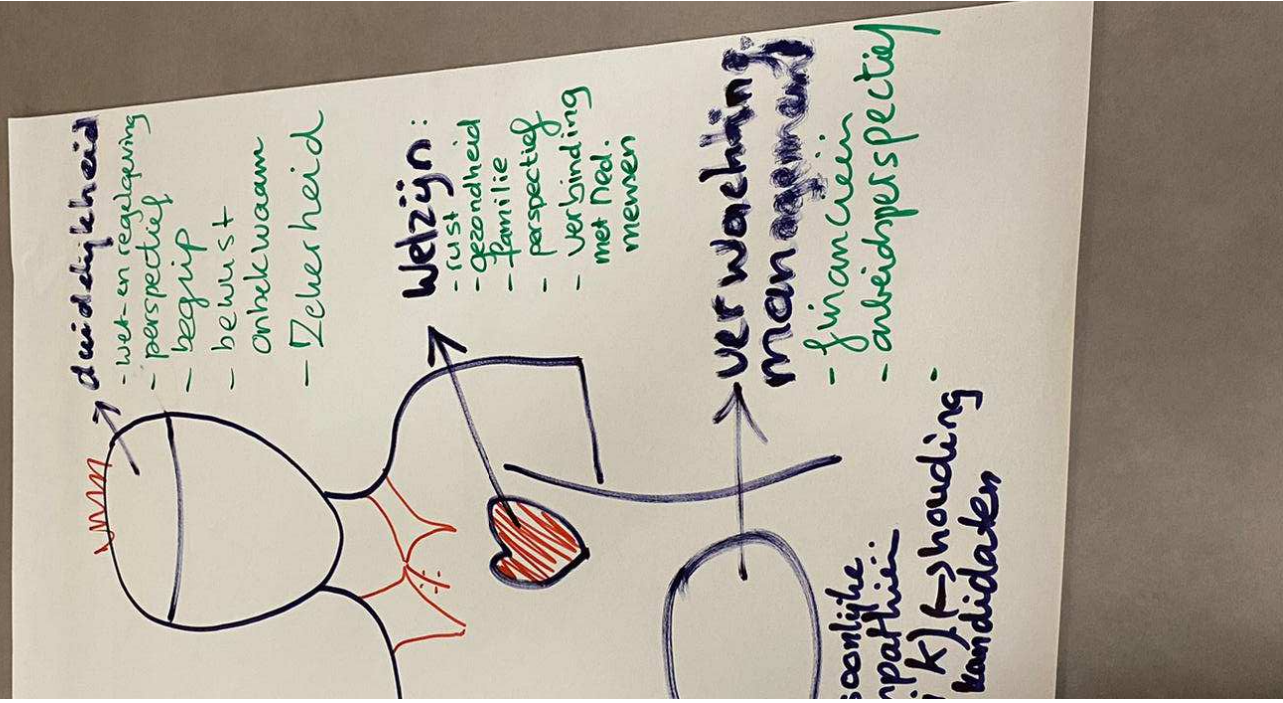 duidelijkheid
- wet- en regelgeving
- perspectief
- begrip
- bewust
onbekwaam
- Zekerheid
Welzijn:
- rust
- gezondheid
- familie
- perspectief
- verbinding
met Ned.
mensen
verwachting
management
- financieën
- arbeidsperspectief
-
soonlijke
mpathieën.
k) → houding
kandidaten